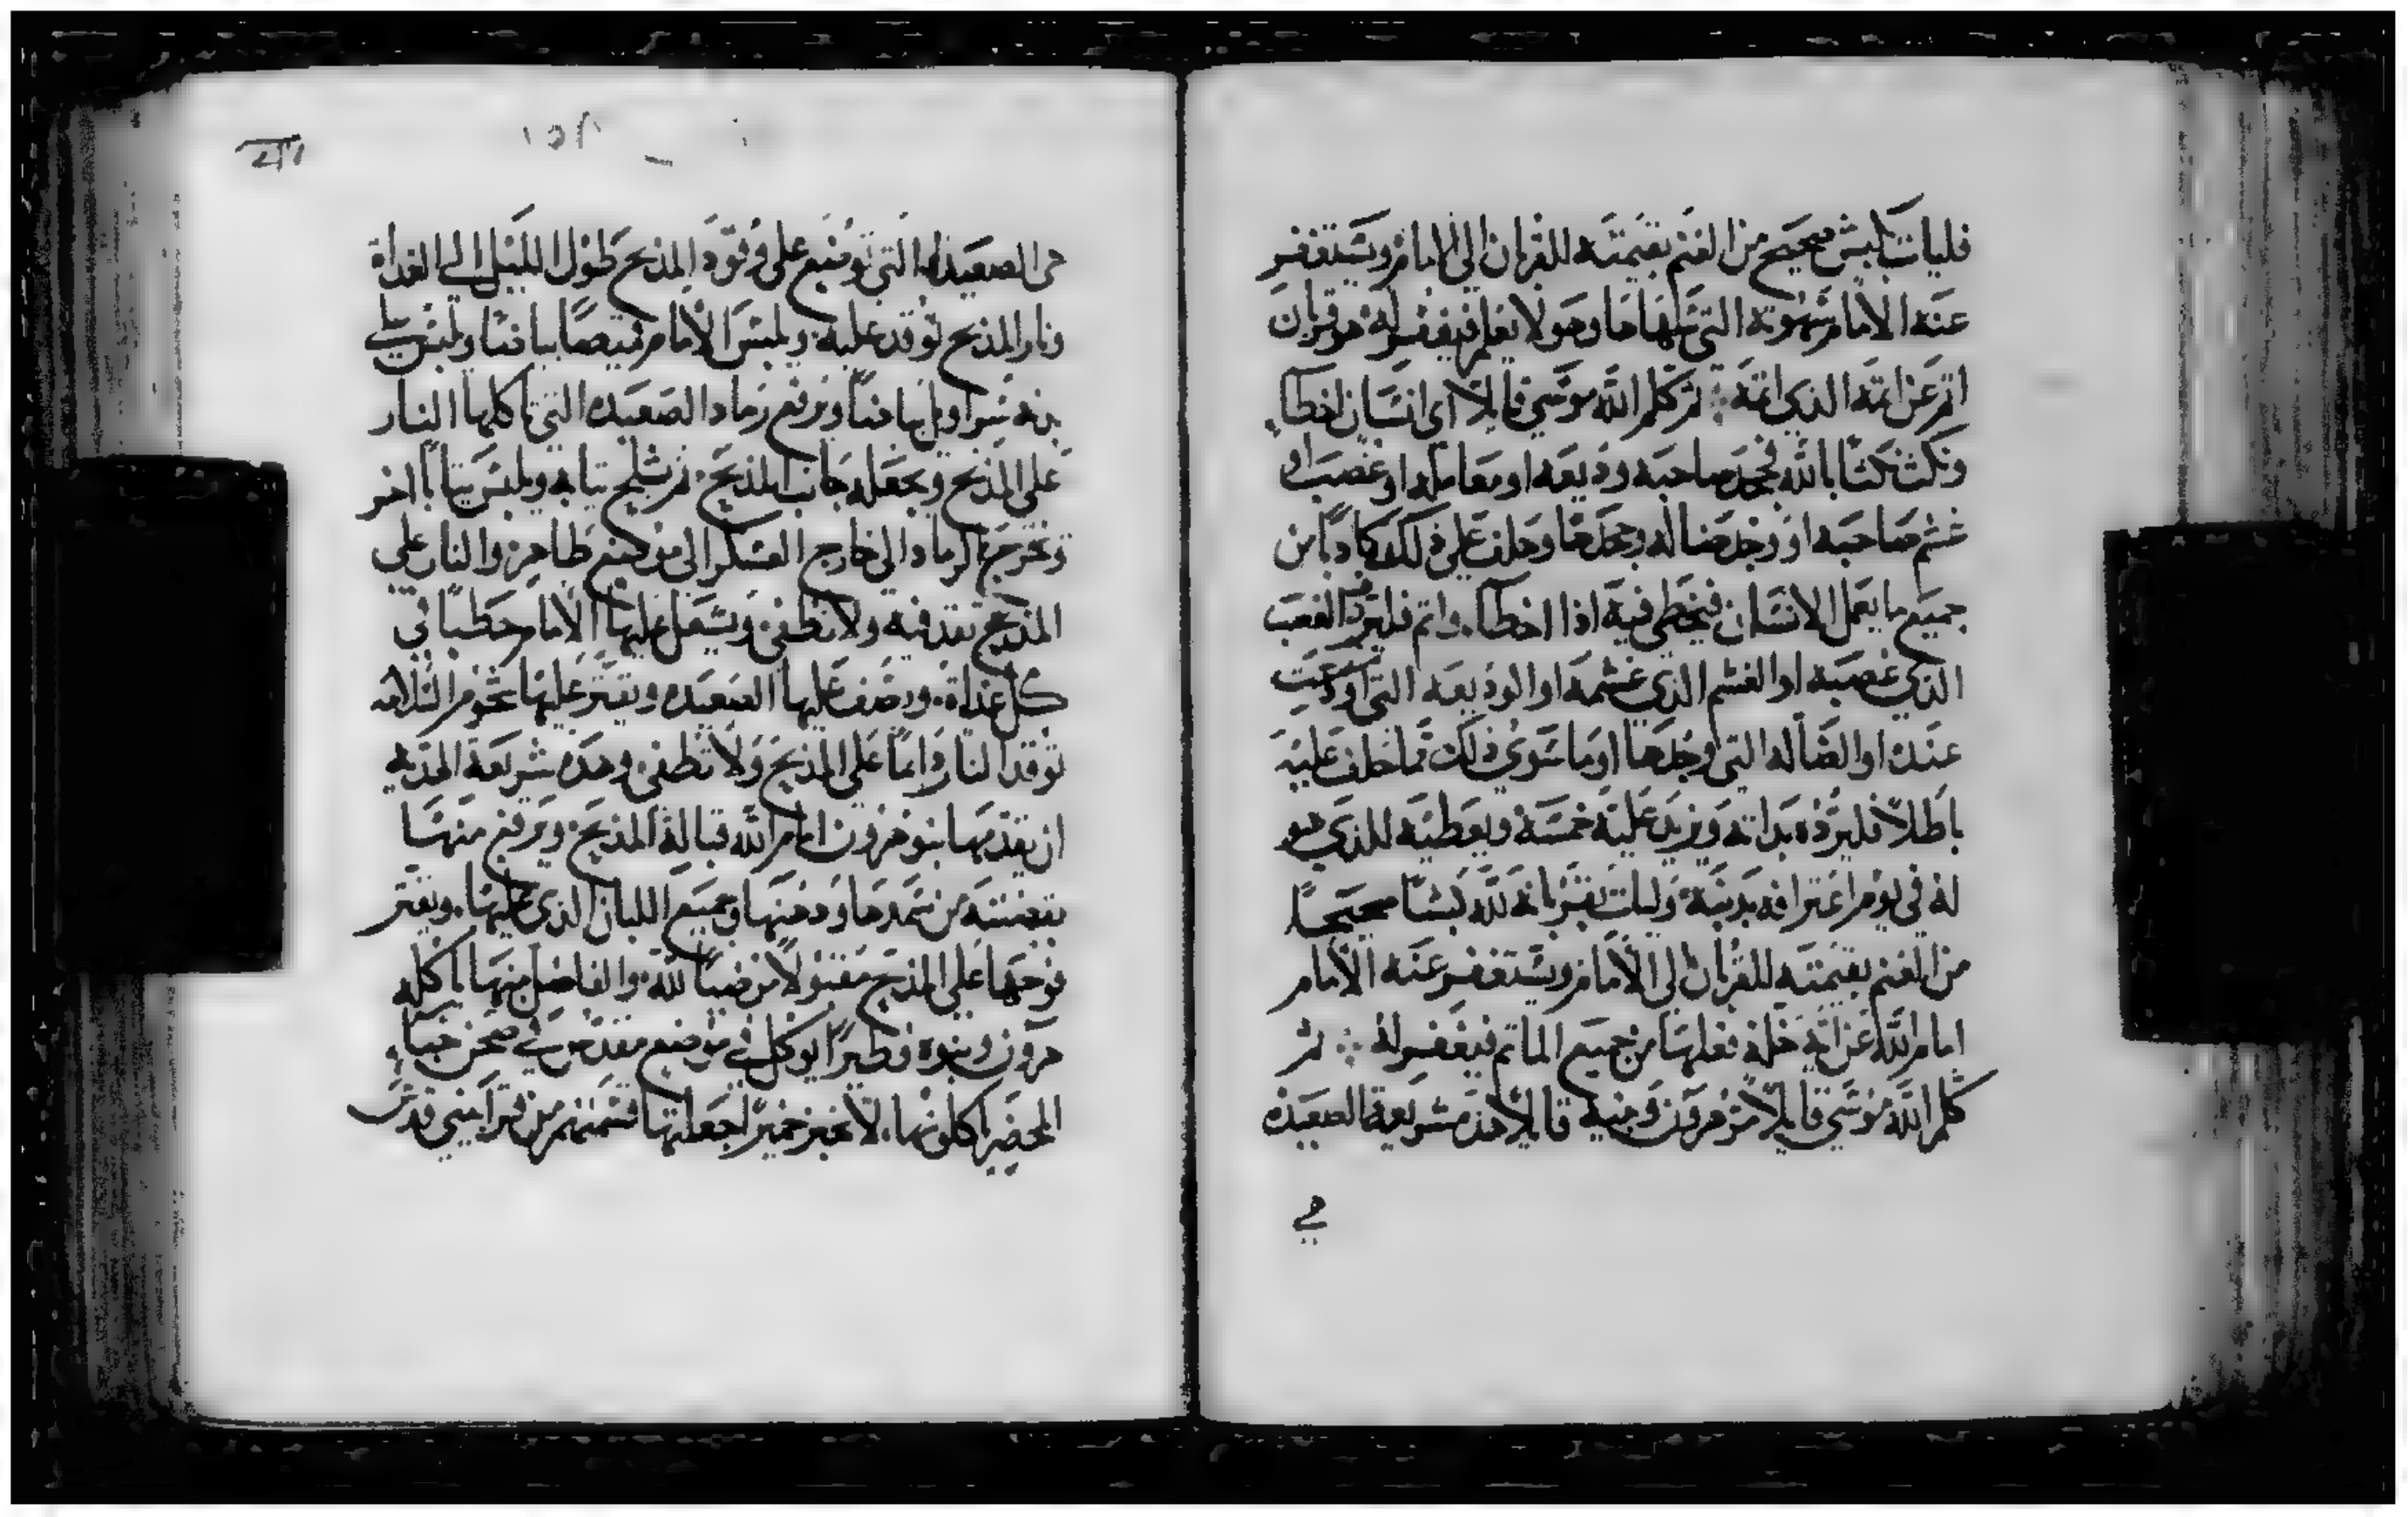 فليات بكبش صحيح من الغنم بقيمته للقربان الى الامام ويستغفر
عنه الامام شهوته التي سهاها وهو لا يعلم فيغفر له هو قربان
اثم عن اثمه الذي اثمه ثم كلم الله موسي قايلا اي انسان اخطا
ونكث نكثا بالله فجحد صاحبه وديعه او معامله او غصب او
غشم صاحبه او وجد ضاله وجحدها وحلف على ذلك كادبا من
جميع ما يعمل الانسان فيخطي فيه اذا اخطا واثم فليرد الغصب
الذي غصبه او الغشم الذي غشمه او الوديعه التي اودعت
عنده او الضاله التي وجدها او ما سوي ذلك مما حلف عليه
باطلا فليرده بداته ويزيد عليه خمسه ويعطيه للذي هو
له في يوم اعترافه بدنبه وليات بقربانه لله كبشا صحيحا
من الغنم بقيمته للقربان الى الامام ويستغفر عنه الامام
امام الله عن اي خله فعلها من جميع الماثم فيغفر له ثم
كلم الله موسي قايلا مر هرون وبنيه قايلا هذه شريعة الصعيده
هي
هي الصعيده التي توضع على وقود المذبح طول الليل الى الغداة
ونار المذبح توقد عليه ويلبس الامام قميصا بياضا ويلبس على
بدنه سراويل بياضا ويرفع رماد الصعيده التي تاكلها النار
على المذبح ويجعله جانب المذبح ثم يشلح تيابه ويلبس تيابا اخر
وتخرج الرماد الى خارج العسكر الى موضع طاهر والنار على
المذبح تقد فيه ولا تطفى ويشعل عليها الامام حطبا في
كل غداة ويضف عليها الصعيده ويقتر عليها شحوم الثلامه
توقد النار دايما على المذبح ولا تطفى وهذه شريعة الهديه
ان يقدمها بنو هرون امام الله قبالة المذبح ويرفع منها
بقبضته من سمدها ودهنها وجميع اللبان الذي عليها ويقتر
نوحها على المذبح مقبولا مرضيا لله والفاضل منها ياكله
هرون وبنوه وطيرا يوكل في موضع مقدس في صحن خبا
المحضر ياكلونها لا تخبز خميرا جعلتها قسمتهم من قرابيني قدس